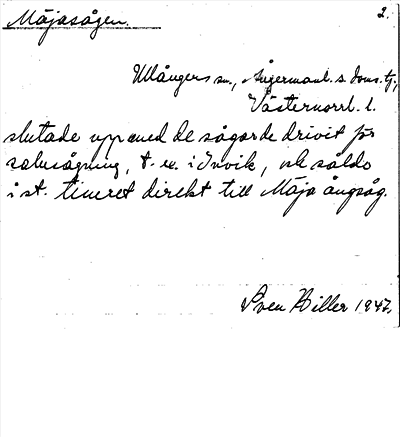 Mäjasågen. 2.
Ullångers sn., Ångermanl. s. doms. tj,
Västernorrl. l.
slutade upp med de sågar de drivit för
salusågning, t. ex. i Invik, och sålde
i st. timret direkt till Mäja ångsåg.
Sven Hiller 1947.